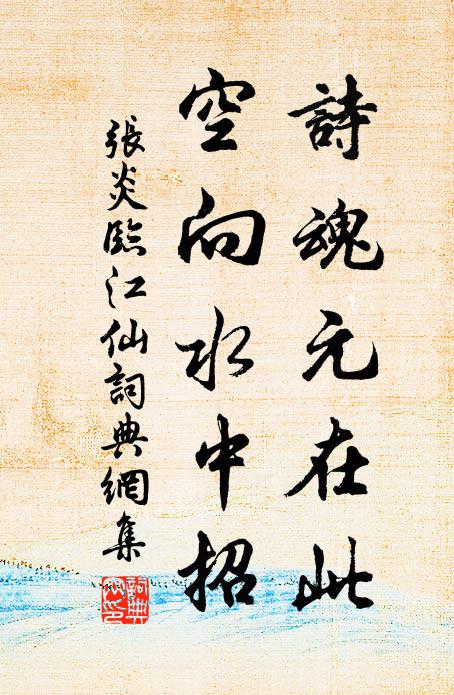 詩魂元在此
空向水中招
張炎臨江仙詞典網集